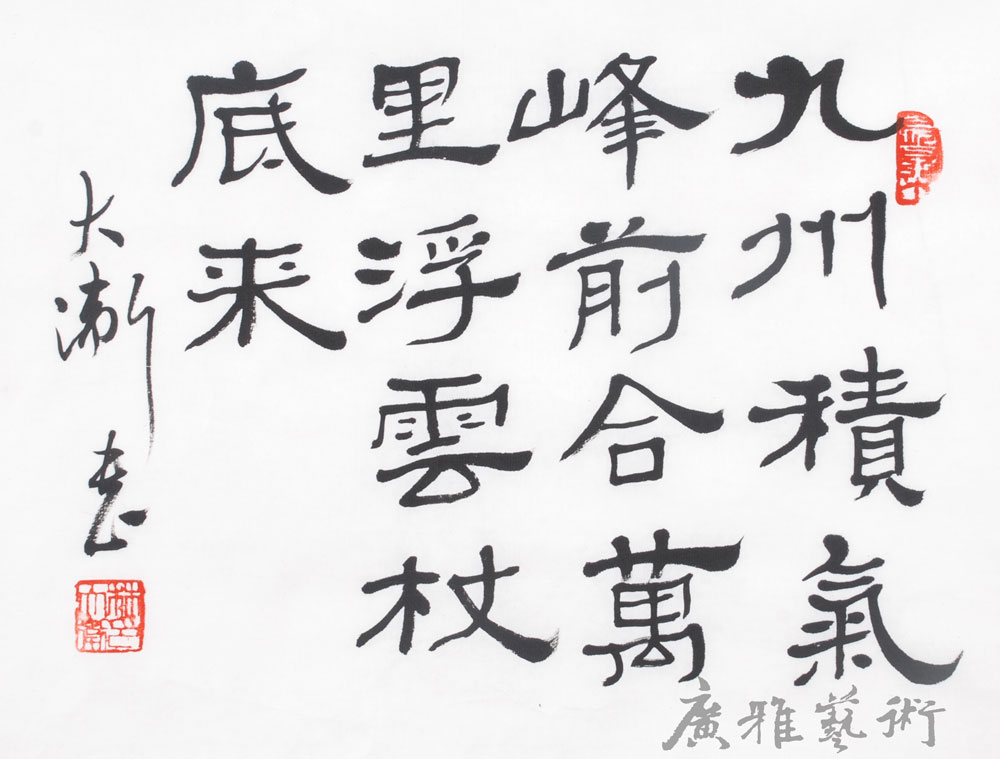 九州積氣
峰前合萬
里浮雲杖
底来
大衞書
廣雅藝術